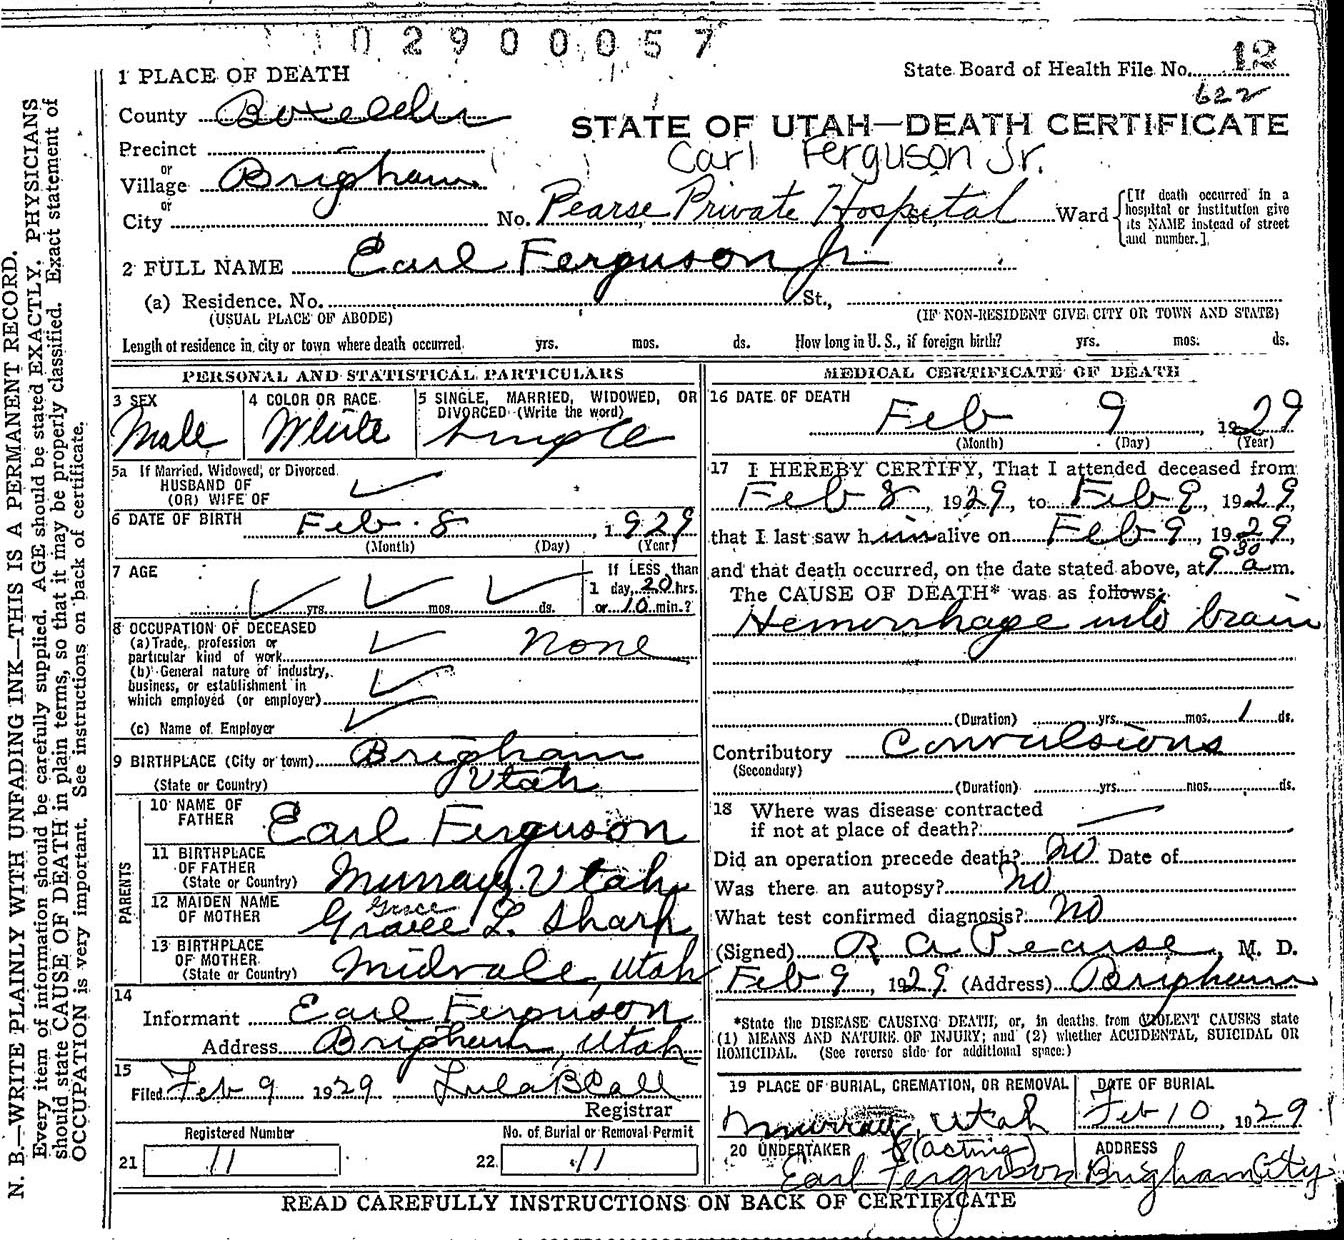 02900057
12
State Board of Health File No.
622
1 PLACE OF DEATH
County Boxelder
STATE OF UTAH—DEATH CERTIFICATE
Precinct
Carl Ferguson Jr.
or
Village Brigham
or
City No. Pearse Private Hospital St., Ward
[If death occurred in a
hospital or institution give
its NAME instead of street
and number.]
2 FULL NAME Earl Ferguson Jr
(a) Residence. No. St.,
(USUAL PLACE OF ABODE) (IF NON-RESIDENT GIVE CITY OR TOWN AND STATE)
Length of residence in city or town where death occurred. yrs. mos. ds. How long in U. S., if foreign birth? yrs. mos. ds.
PERSONAL AND STATISTICAL PARTICULARS
3 SEX 4 COLOR OR RACE 5 SINGLE, MARRIED, WIDOWED, OR
DIVORCED (Write the word)
Male White Single
5a If Married, Widowed, or Divorced
HUSBAND OF
(OR) WIFE OF
6 DATE OF BIRTH Feb. 8, 1929
(Month) (Day) (Year)
7 AGE If LESS than
1 day, 20 hrs.
yrs. mos. ds. or 10 min.?
8 OCCUPATION OF DECEASED
(a) Trade, profession or
particular kind of work None
(b) General nature of industry,
business, or establishment in
which employed (or employer)
(c) Name of Employer
9 BIRTHPLACE (City or town) Brigham
(State or Country) Utah
PARENTS
10 NAME OF
FATHER Earl Ferguson
11 BIRTHPLACE
OF FATHER
(State or Country) Murray, Utah
12 MAIDEN NAME
OF MOTHER Grace L. Sharp
Grace
13 BIRTHPLACE
OF MOTHER
(State or Country) Midvale, Utah
14
Informant Earl Ferguson
Address Brigham, Utah
15
Filed Feb 9 1929 Lula B Call
Registrar
Registered Number No. of Burial or Removal Permit
21 11 22 11
MEDICAL CERTIFICATE OF DEATH
16 DATE OF DEATH
Feb 9, 1929
(Month) (Day) (Year)
17 I HEREBY CERTIFY, That I attended deceased from
Feb 8, 1929, to Feb 9, 1929
that I last saw him alive on Feb 9, 1929,
and that death occurred, on the date stated above, at 9 30 a m.
The CAUSE OF DEATH* was as follows:
Hemorrhage into brain
(Duration) yrs. mos. 1 ds.
Contributory Convulsions
(Secondary)
(Duration) yrs. mos. ds.
18 Where was disease contracted
if not at place of death?
Did an operation precede death? no Date of
Was there an autopsy? no
What test confirmed diagnosis? no
(Signed) R A Pearse, M. D.
Feb 9, 1929 (Address) Brigham
*State the DISEASE CAUSING DEATH, or, in deaths from VIOLENT CAUSES state
(1) MEANS AND NATURE OF INJURY; and (2) whether ACCIDENTAL, SUICIDAL OR
HOMICIDAL. (See reverse side for additional space.)
19 PLACE OF BURIAL, CREMATION, OR REMOVAL DATE OF BURIAL
Murray, Utah Feb 10 1929
20 UNDERTAKER (acting) ADDRESS
Earl Ferguson Brigham City
READ CAREFULLY INSTRUCTIONS ON BACK OF CERTIFICATE
N. B.—WRITE PLAINLY WITH UNFADING INK—THIS IS A PERMANENT RECORD.
Every item of information should be carefully supplied. AGE should be stated EXACTLY. PHYSICIANS
should state CAUSE OF DEATH in plain terms, so that it may be properly classified. Exact statement of
OCCUPATION is very important. See instructions on back of certificate.